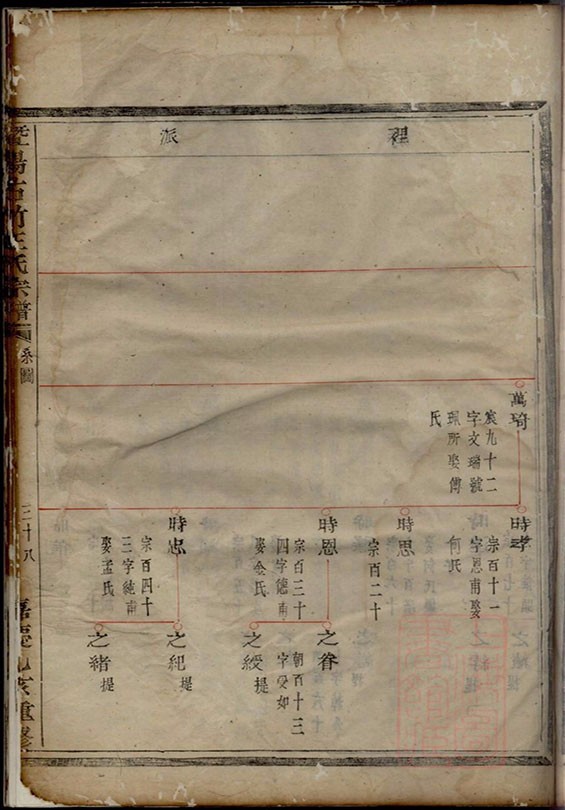 裡派
萬琦
宸九十二
字文瑞號
珮所娶傅
氏
時孝
宗百十一
字思甫娶
何氏
時思
宗百二十
時恩
宗百三十
四字德甫
娶金氏
時忠
宗百四十
三字純甫
娶孟氏
之眷
朝百十三
字受如
之綬提
之紀提
之緒提
暨陽古竹王氏宗譜
系圖
三十八
嘉慶九原重修